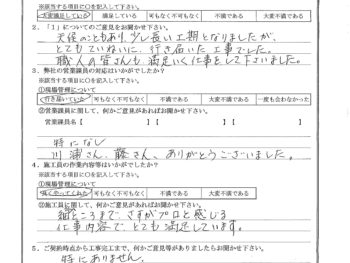 ※該当する項目に○を記入して下さい。
大変満足している 満足している 可もなく不可もなく 不満である 大変不満である
2、「1」についてのご意見をお聞かせ下さい。
天候のこともあり、少し長い工期となりましたが、
とてもていねいに、行き届いた工事でした。
職人の皆さんも満足いく仕事をして下さいました。
3、弊社の営業課員の対応はいかがでしたか?
※該当する項目に○を記入して下さい。
①現場管理について
行き届いていた 可もなく不可もなく 不満である 大変不満である 一度も会わなかった
②営業課員に関して、何かご意見があればお聞かせ下さい。
営業課員名【 】【 】【 】【 】
特になし
川浦さん、藤さん、ありがとうございました。
4、施工員の作業内容等はいかがでしたか?
※該当する項目に○を記入して下さい。
①現場管理について
良くやってくれた 可もなく不可もなく 不満である 大変不満である
②施工員に関して、何かご意見があればお聞かせ下さい。
細ところまで、さすがプロと感じる
仕事内容で、とても満足しています。
5、ご契約時点から工事完工まで、何かご意見等がありましたらお聞かせ下さい。
特にありません。